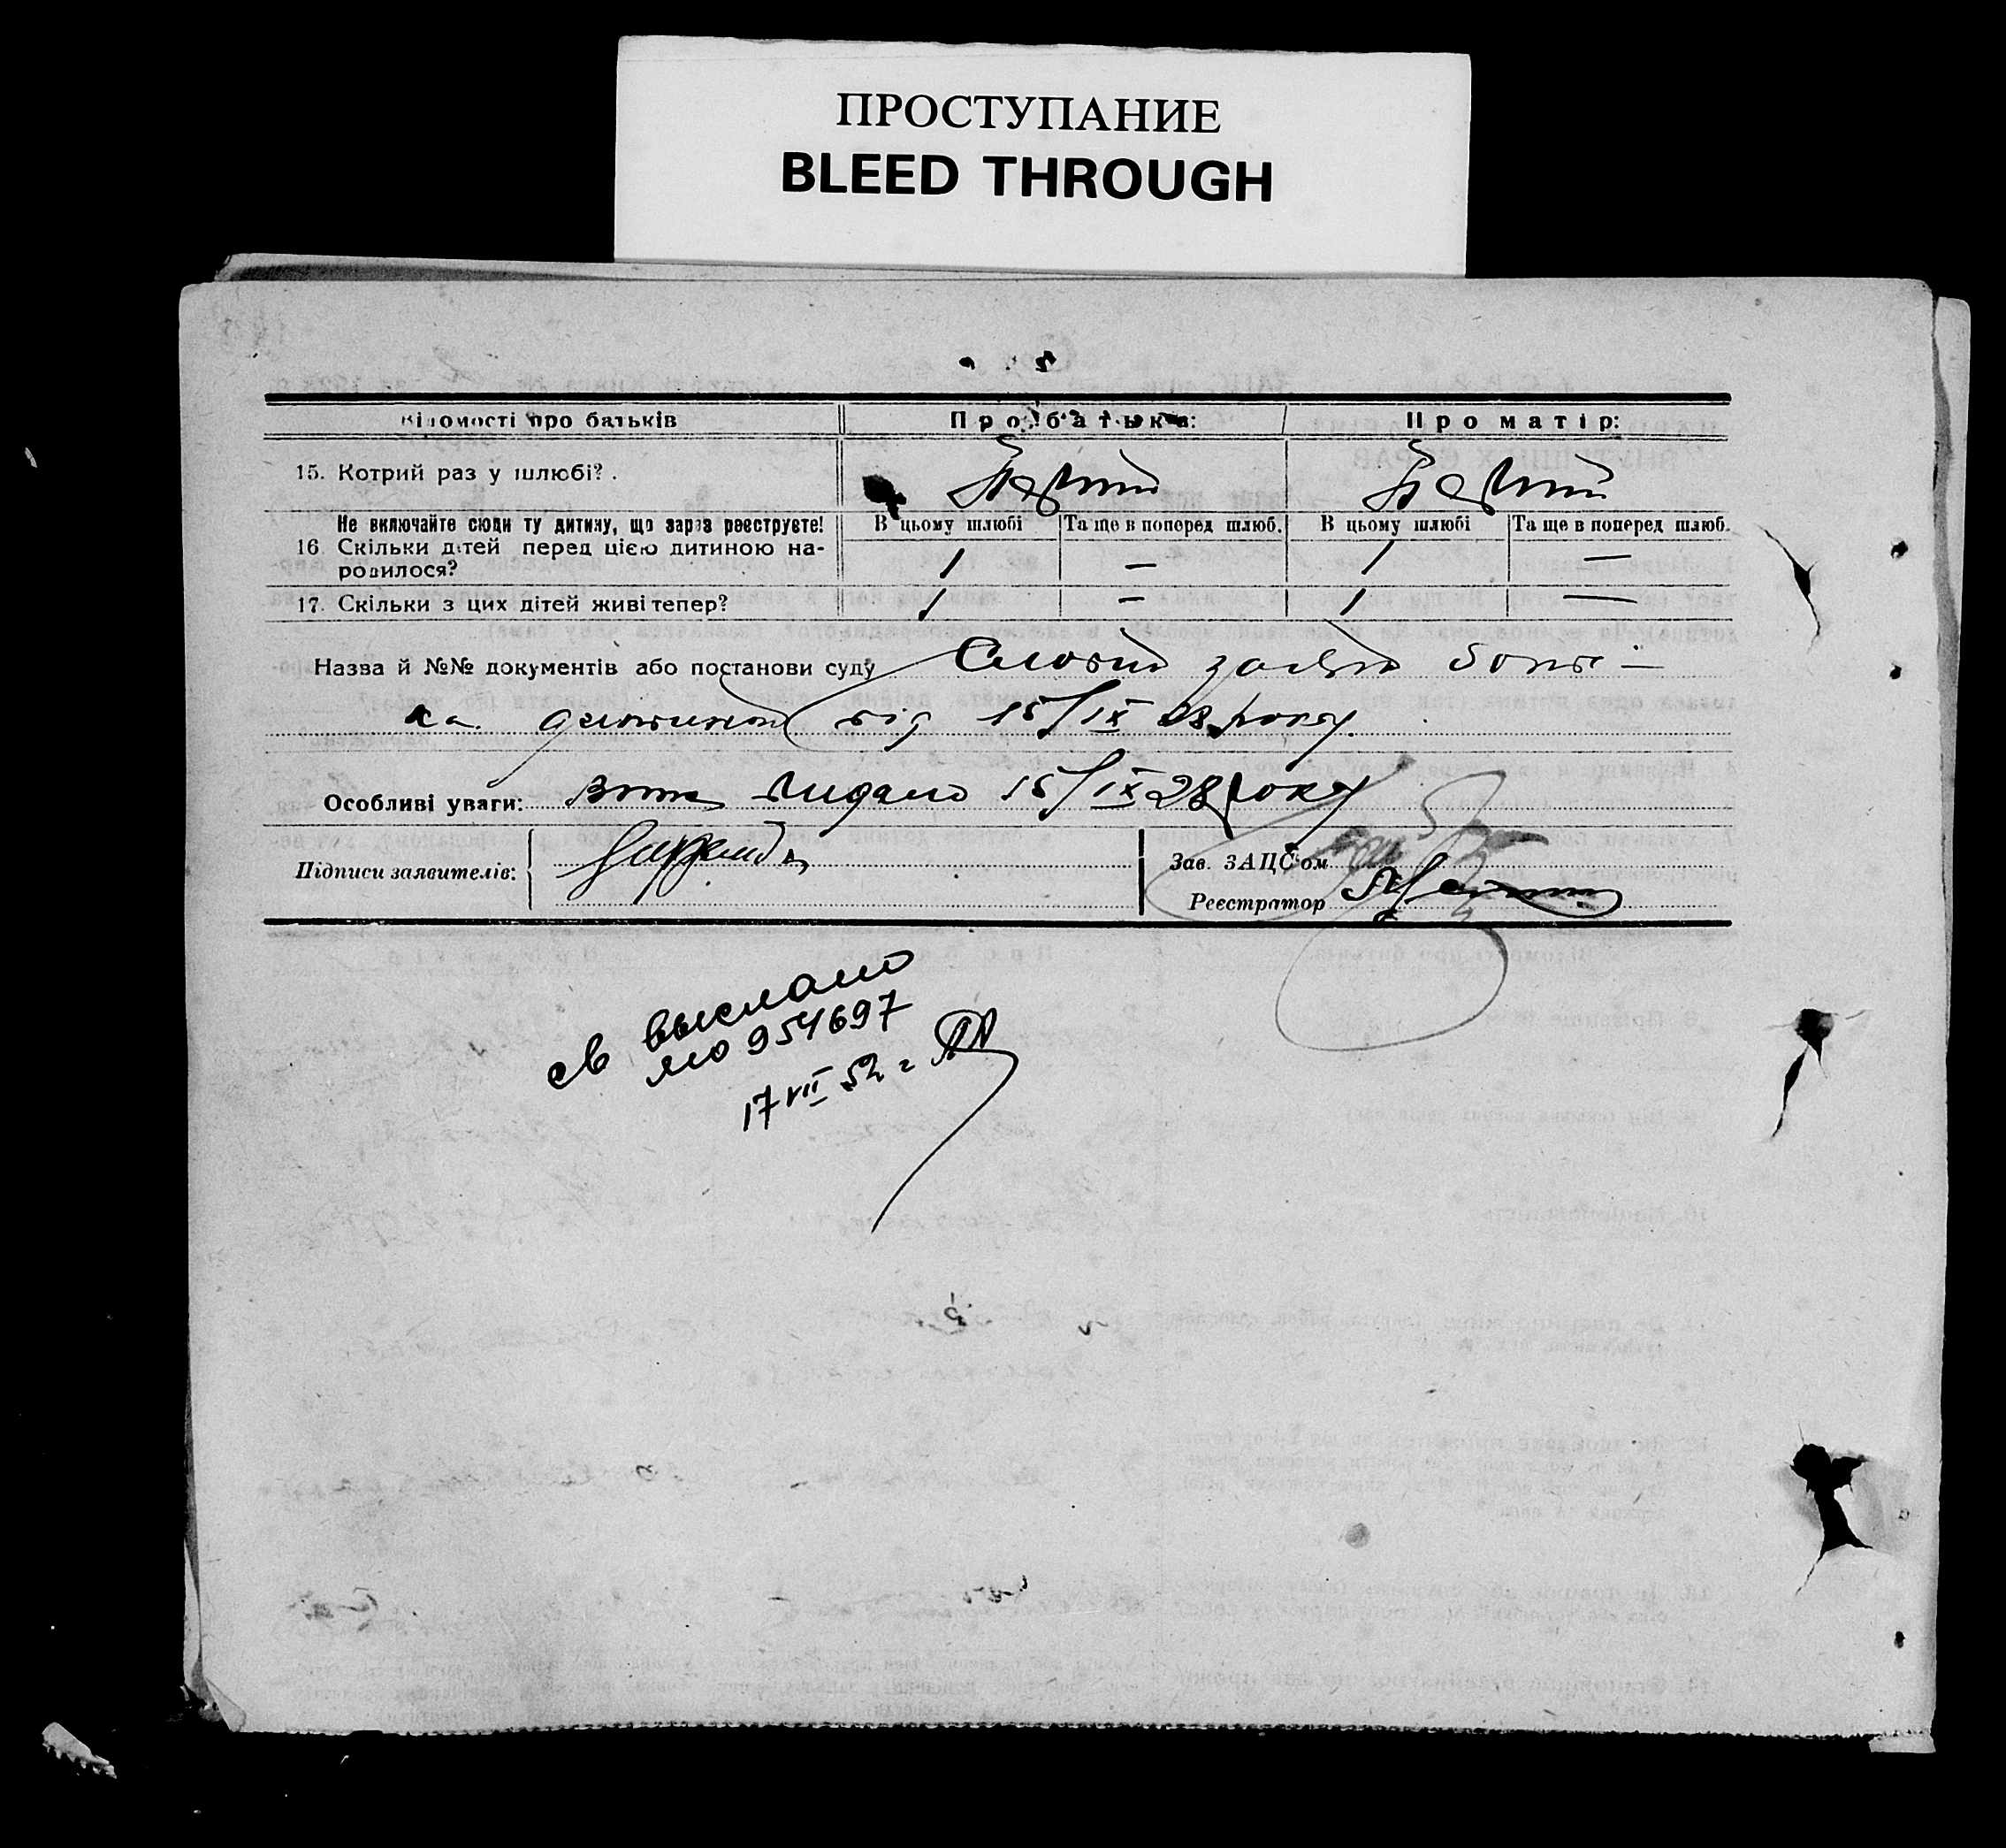 ПРОСТУПАНИЕ
BLEED THROUGH
Відомості про батьків Про батька: Про матір:
15. Котрий раз у шлюбі?. Перший Перший
Не включайте сюди ту дитину, що зараз реєструєте! В цьому шлюбі Та ще в поперед шлюб. В цьому шлюбі Та ще в поперед шлюб.
16. Скільки дітей перед цією дитиною на-
родилося? 1 — 1 —
17. Скільки з цих дітей живі тепер? 1 — 1 —
Назва й №№ документів або постанови суду Словий заява
від 15/IX 28 року.
Особливі уваги: видано 15/IX 28 року
Підписи заявителів:
Зав. ЗАЦС'ом
Реєстратор
св выслано
ЯЮ 954697
17 VII 52 г